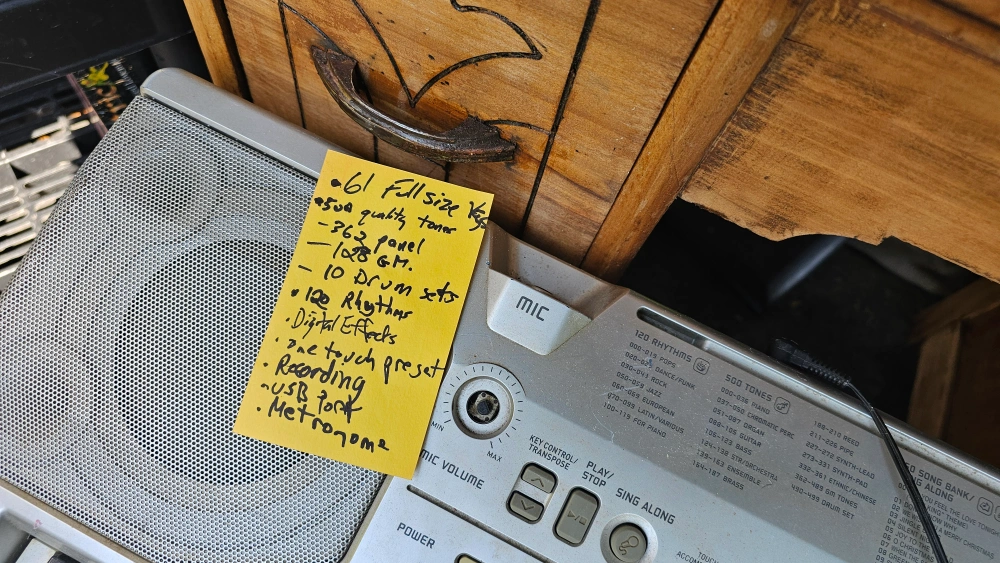 • 61 Full size Keys
• 500 quality tones
- 362 panel
- 128 GM.
- 10 Drum sets
• 120 Rhythms
• Digital Effects
• one touch preset
• Recording
- USB Port
• Metronome
MIC
MIN
MAX
MIC VOLUME
POWER
KEY CONTROL/
TRANSPOSE
PLAY/
STOP
SING ALONG
TOUCH
120 RHYTHMS
000-019 POPS
020-029 DANCE/FUNK
030-049 ROCK
050-059 JAZZ
060-069 EUROPEAN
070-099 LATIN/VARIOUS
100-119 FOR PIANO
500 TONES
000-036 PIANO
037-050 CHROMATIC PERC
051-087 ORGAN
088-105 GUITAR
106-123 BASS
124-138 STR/ORCHESTRA
139-163 ENSEMBLE
164-187 BRASS
188-210 REED
211-226 PIPE
227-272 SYNTH-LEAD
273-331 SYNTH-PAD
332-361 ETHNIC/CHINESE
362-489 GM TONES
490-499 DRUM SET
SONG BANK/
SING ALONG